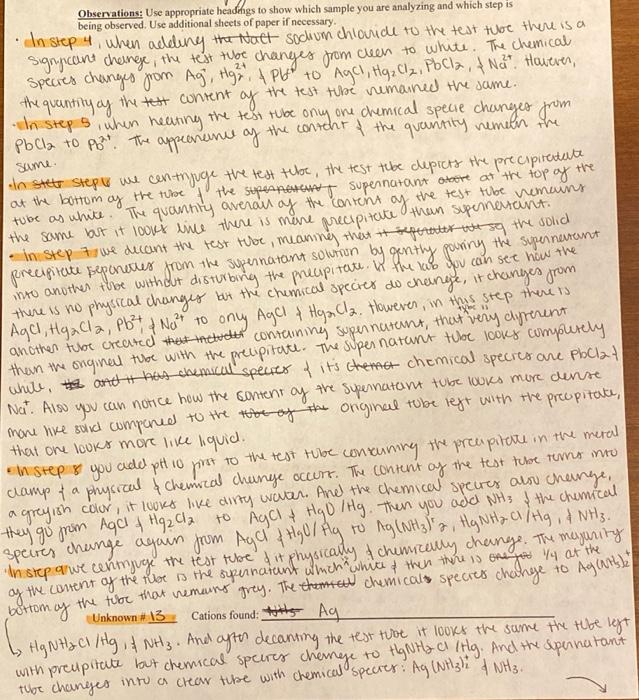 Observations: Use appropriate headings to show which sample you are analyzing and which step is
being observed. Use additional sheets of paper if necessary.
• In step 4, when adding the NaCl sodium chloride to the test tube there is a
significant change, the test tube changes from clear to white. The chemical
species changes from Ag⁺, Hg₂²⁺, & Pb²⁺ to AgCl, Hg₂Cl₂, PbCl₂, & Na⁺. However,
the quantity of the test content of the test tube remained the same.
• In step 5, when heating the test tube only one chemical specie changes from
PbCl₂ to Pb²⁺. The appearance of the content & the quantity remain the
same.
• In step 6 we centrifuge the test tube, the test tube depicts the precipitate
at the bottom of the tube & the supernatant supernatant above at the top of the
tube as white. The quantity overall of the content of the test tube remains
the same but it looks like there is more precipitate than supernatant.
• In step 7 we decant the test tube, meaning that it the solid
precipitate separates from the supernatant solution by gently pouring the supernatant
into another tube without disturbing the precipitate. In the lab you can see how the
there is no physical changes but the chemical species do change, it changes from
AgCl, Hg₂Cl₂, Pb²⁺ & Na⁺ to only AgCl & Hg₂Cl₂. However, in this step there is
another tube created that includes containing supernatant, that very different
than the original tube with the precipitate. The supernatant tube looks completely
white, and it has chemical species & it's chemical species are PbCl₂ &
Na⁺. Also you can notice how the content of the supernatant tube looks more dense
more like solid compared to the tube of the original tube left with the precipitate,
that one looks more like liquid.
• In step 8 you add pH 10 first to the test tube containing the precipitate in the metal
clamp & a physical & chemical change occurr. The content of the test tube turns into
a greyish color, it looks like dirty water. And the chemical species also change,
they go from AgCl & Hg₂Cl₂ to AgCl & HgO/Hg. Then you add NH₃ & the chemical
species change again from AgCl & HgO/Hg to Ag(NH₃)⁺₂, HgNH₂Cl/Hg, & NH₃.
• In step 9 we centrifuge the test tube & it physically & chemically change. The majority
of the content of the tube is the supernatant which is white & then there is 1/4 at the
bottom of the tube that remains grey. The chemical chemicals species change to Ag(NH₃)₂⁺
Unknown # 13 Cations found: Ag
HgNH₂Cl/Hg, & NH₃. And after decanting the test tube it looks the same the tube left
with precipitate but chemical species change to HgNH₂Cl/Hg. And the supernatant
tube changes into a clear tube with chemical species: Ag(NH₃)₂⁺ & NH₃.